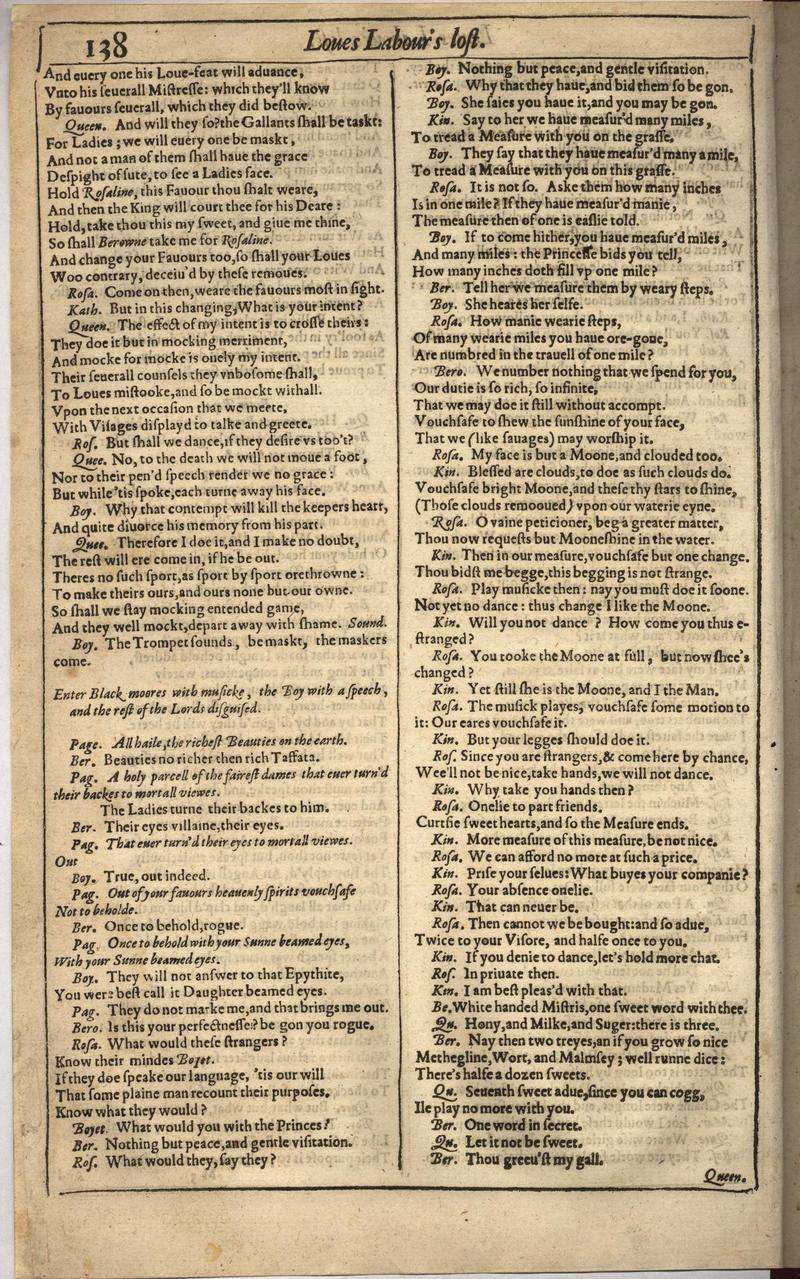 138
Loues Labour's lost.
And euery one his Loue-feat will aduance,
Vnto his ſeuerall Miſtreſſe: which they'll know
By fauours ſeuerall, which they did beſtow.
Queen. And will they ſo? the Gallants ſhall be taskt:
For Ladies; we will euery one be maskt,
And not a man of them ſhall haue the grace
Deſpight of ſute, to ſee a Ladies face.
Hold Roſaline, this Fauour thou ſhalt weare,
And then the King will court thee for his Deare:
Hold, take thou this my ſweet, and giue me thine,
So ſhall Berowne take me for Roſaline.
And change your Fauours too, ſo ſhall your Loues
Woo contrary, deceiu'd by theſe remoues.
Roſa. Come on then, weare the fauours moſt in ſight.
Kath. But in this changing, What is your intent?
Queen. The effect of my intent is to croſſe theirs:
They doe it but in mocking merriment,
And mocke for mocke is onely my intent.
Their ſeuerall counſels they vnboſome ſhall,
To Loues miſtooke, and ſo be mockt withall.
Vpon the next occaſion that we meete,
With Viſages diſplayd to talke and greete.
Roſ. But ſhall we dance, if they deſire vs too't?
Quee. No, to the death we will not moue a foot,
Nor to their pen'd ſpeech render we no grace:
But while 'tis ſpoke, each turne away his face.
Boy. Why that contempt will kill the keepers heart,
And quite diuorce his memory from his part.
Quee. Therefore I doe it, and I make no doubt,
The reſt will ere come in, if he be out.
Theres no ſuch ſport, as ſport by ſport orethrowne:
To make theirs ours, and ours none but our owne.
So ſhall we ſtay mocking entended game,
And they well mockt, depart away with ſhame. Sound.
Boy. The Trompet ſounds, be maskt, the maskers
come.
Enter Black moores with muſicke, the Boy with a ſpeech,
and the reſt of the Lords diſguiſed.
Page. All haile, the richeſt Beauties on the earth.
Ber. Beauties no richer then rich Taffata.
Pag. A holy parcell of the faireſt dames that euer turn'd
their backes to mortall viewes.
The Ladies turne their backes to him.
Ber. Their eyes villaine, their eyes.
Pag. That euer turn'd their eyes to mortall viewes.
Out
Boy. True, out indeed.
Pag. Out of your fauours heauenly ſpirits vouchſafe
Not to beholde.
Ber. Once to behold, rogue.
Pag. Once to behold with your Sunne beamed eyes,
With your Sunne beamed eyes.
Boy. They will not anſwer to that Epythite,
You were beſt call it Daughter beamed eyes.
Pag. They do not marke me, and that brings me out.
Bero. Is this your perfectneſſe? be gon you rogue.
Roſa. What would theſe ſtrangers?
Know their mindes Boyet.
If they doe ſpeake our language, 'tis our will
That ſome plaine man recount their purpoſes.
Know what they would?
Boyet. What would you with the Princes?
Ber. Nothing but peace, and gentle viſitation.
Roſ. What would they, ſay they?
Boy. Nothing but peace, and gentle viſitation.
Roſa. Why that they haue, and bid them ſo be gon.
Boy. She ſaies you haue it, and you may be gon.
Kin. Say to her we haue meaſur'd many miles,
To tread a Meaſure with you on the graſſe.
Boy. They ſay that they haue meaſur'd many a mile,
To tread a Meaſure with you on this graſſe.
Roſa. It is not ſo. Aske them how many inches
Is in one mile? If they haue meaſur'd manie,
The meaſure then of one is eaſlie told.
Boy. If to come hither, you haue meaſur'd miles,
And many miles: the Princeſſe bids you tell,
How many inches doth fill vp one mile?
Ber. Tell her we meaſure them by weary ſteps.
Boy. She heares her ſelfe.
Roſa. How manie wearie ſteps,
Of many wearie miles you haue ore-gone,
Are numbred in the trauell of one mile?
Bero. We number nothing that we ſpend for you,
Our dutie is ſo rich, ſo infinite,
That we may doe it ſtill without accompt.
Vouchſafe to ſhew the ſunſhine of your face,
That we (like ſauages) may worſhip it.
Roſa. My face is but a Moone, and clouded too.
Kin. Bleſſed are clouds, to doe as ſuch clouds do.
Vouchſafe bright Moone, and theſe thy ſtars to ſhine,
(Thoſe clouds remooued) vpon our waterie eyne.
Roſa. O vaine peticioner, beg a greater matter,
Thou now requeſts but Mooneſhine in the water.
Kin. Then in our meaſure, vouchſafe but one change.
Thou bidſt me begge, this begging is not ſtrange.
Roſa. Play muſicke then: nay you muſt doe it ſoone.
Not yet no dance: thus change I like the Moone.
Kin. Will you not dance? How come you thus e-
ſtranged?
Roſa. You tooke the Moone at full, but now ſhee's
changed?
Kin. Yet ſtill ſhe is the Moone, and I the Man.
Roſa. The muſick playes, vouchſafe ſome motion to
it: Our eares vouchſafe it.
Kin. But your legges ſhould doe it.
Roſ. Since you are ſtrangers, & come here by chance,
Wee'll not be nice, take hands, we will not dance.
Kin. Why take you hands then?
Roſa. Onelie to part friends.
Curtſie ſweet hearts, and ſo the Meaſure ends.
Kin. More meaſure of this meaſure, be not nice.
Roſa. We can afford no more at ſuch a price.
Kin. Priſe your ſelues: What buyes your companie?
Roſa. Your abſence onelie.
Kin. That can neuer be.
Roſa. Then cannot we be bought: and ſo adue,
Twice to your Viſore, and halfe once to you.
Kin. If you denie to dance, let's hold more chat.
Roſ. In priuate then.
Kin. I am beſt pleas'd with that.
Be. White handed Miſtris, one ſweet word with thee.
Qu. Hony, and Milke, and Suger: there is three.
Ber. Nay then two treyes, an if you grow ſo nice
Methegline, Wort, and Malmſey; well runne dice:
There's halfe a dozen ſweets.
Qu. Seuenth ſweet adue, ſince you can cogg,
Ile play no more with you.
Ber. One word in ſecret.
Qu. Let it not be ſweet.
Ber. Thou greeu'ſt my gall.
Queen.